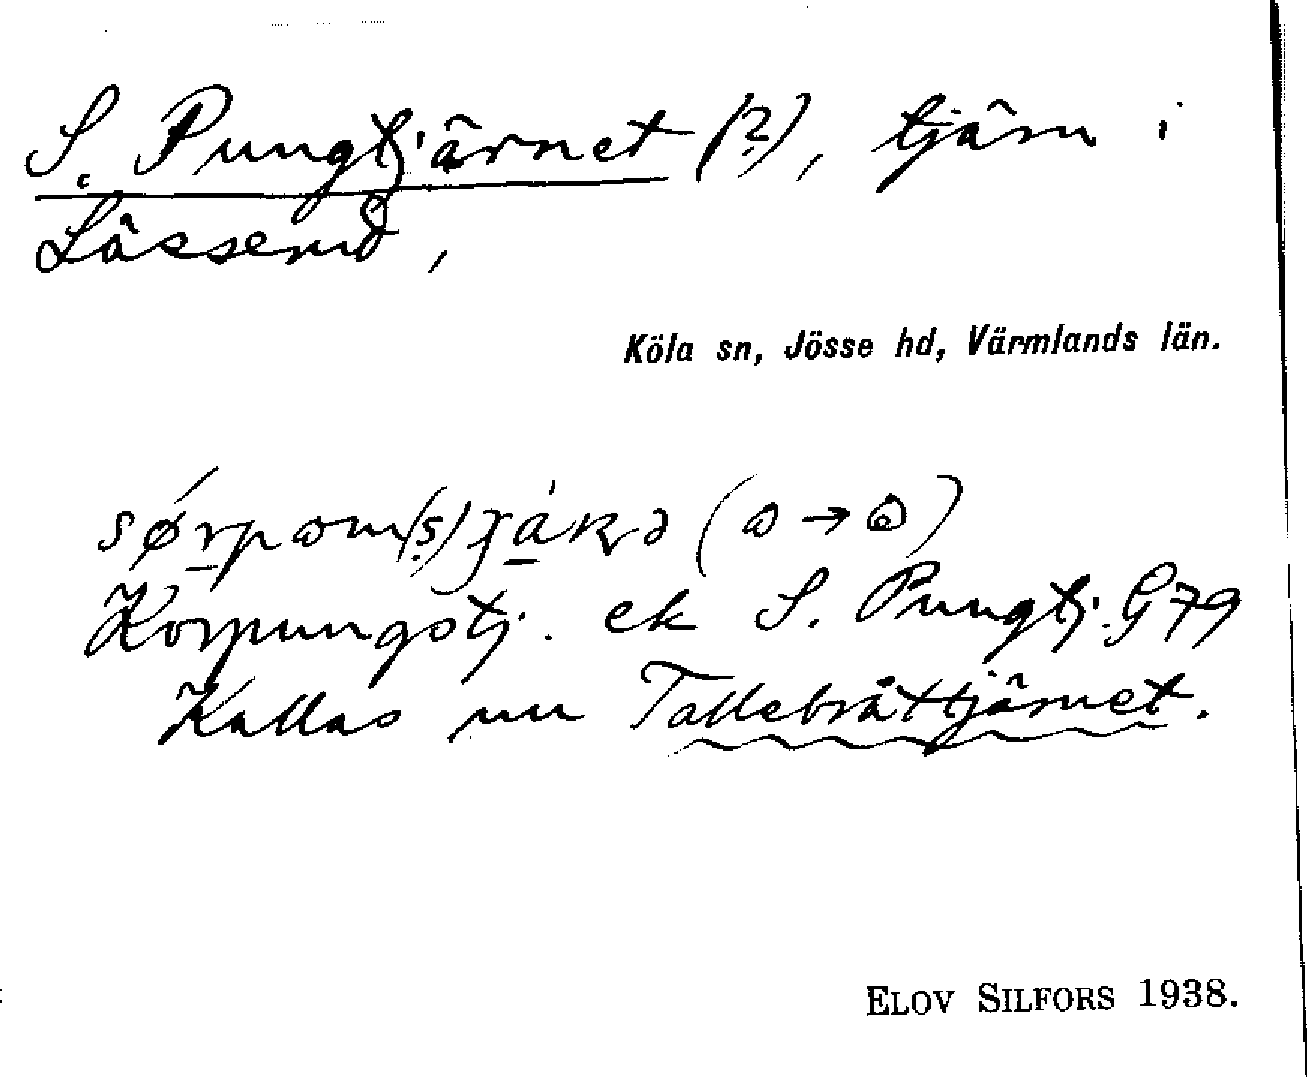 S. Pungtjärnet (?), tjärn i
Lässerud,
Köla sn, Jösse hd, Värmlands län.
Korpungstj. ek S. Pungtj. G 79
Kallas nu Tallebråttjärnet.
ELOV SILFORS 1938.